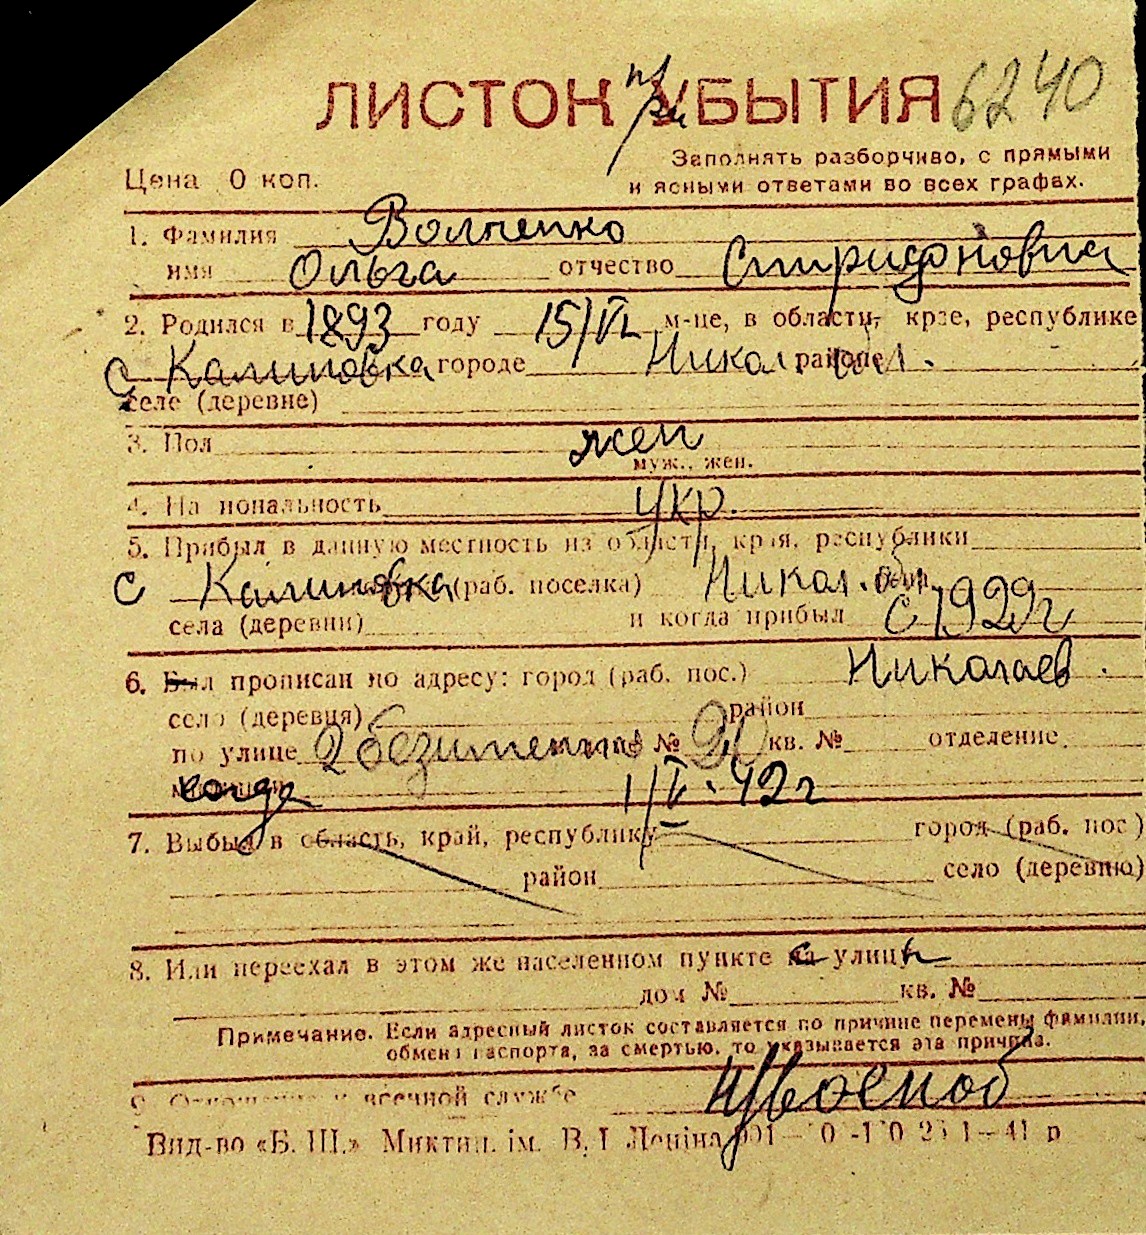 ЛИСТОК при УБЫТИЯ 6240
Заполнять разборчиво, с прямыми
Цена 0 коп.
и ясными ответами во всех графах.
1. Фамилия Волченко
имя Ольга отчество Спиридоновна
2. Родился в 1893 году 15/VI м-це, в области, крае, республике
с Калиновка городе Никол. районе обл.
селе (деревне)
3. Пол жен
муж., жен.
4. Национальность укр.
5. Прибыл в данную местность из области, края, республики
с Калиновка (раб. поселка) Никол. обл.
села (деревни) и когда прибыл с 1929 г
6. Был прописан по адресу: город (раб. пос.) Николаев.
село (деревня) район
по улице 2 безименная № 20 кв. № отделение
когда 1/V. 42 г
7. Выбыл в область, край, республику город (раб. пос.)
район село (деревню)
8. Или переехал в этом же населенном пункте с улицы
дом № кв. №
Примечание. Если адресный листок составляется по причине перемены фамилии,
обмена паспорта, за смертью, то указывается эта причина.
9. Отношение к военной службе н/военоб
Вид-во «Б. Ш.» Миктип. ім. В. І Леніна